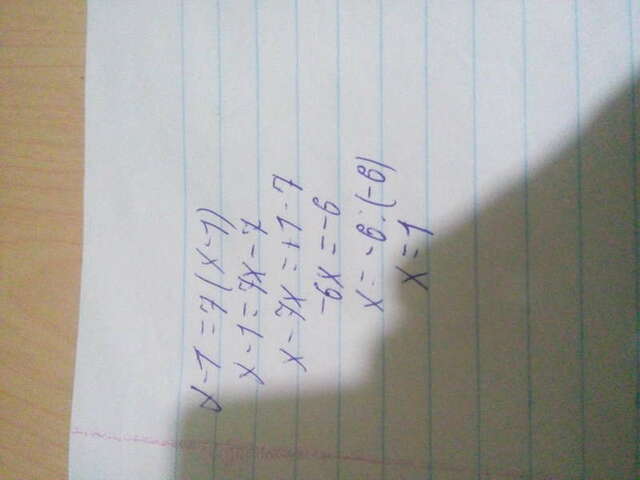 x-1=7(x-1)
x-1=7x-7
x-7x=+1-7
-6x=-6
x=-6:(-6)
x=1